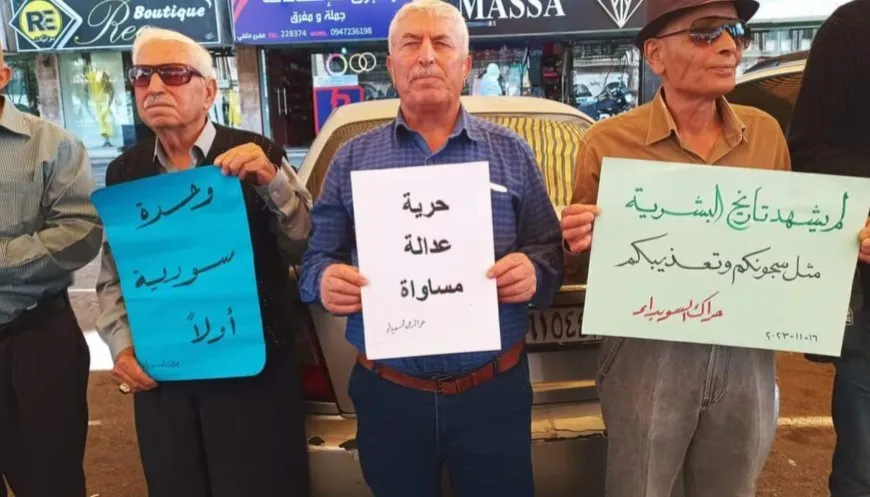 RE
Boutique
جملة ومفرق
228374
MOBIL 0947236198
MASSA
وحدة
سورية
أولاً
حرية
عدالة
مساواة
حراك السويداء
لم يشهد تاريخ البشرية
مثل سجونكم وتعذيبكم
حراك السويداء
٢٠٢٣-١١-١٦